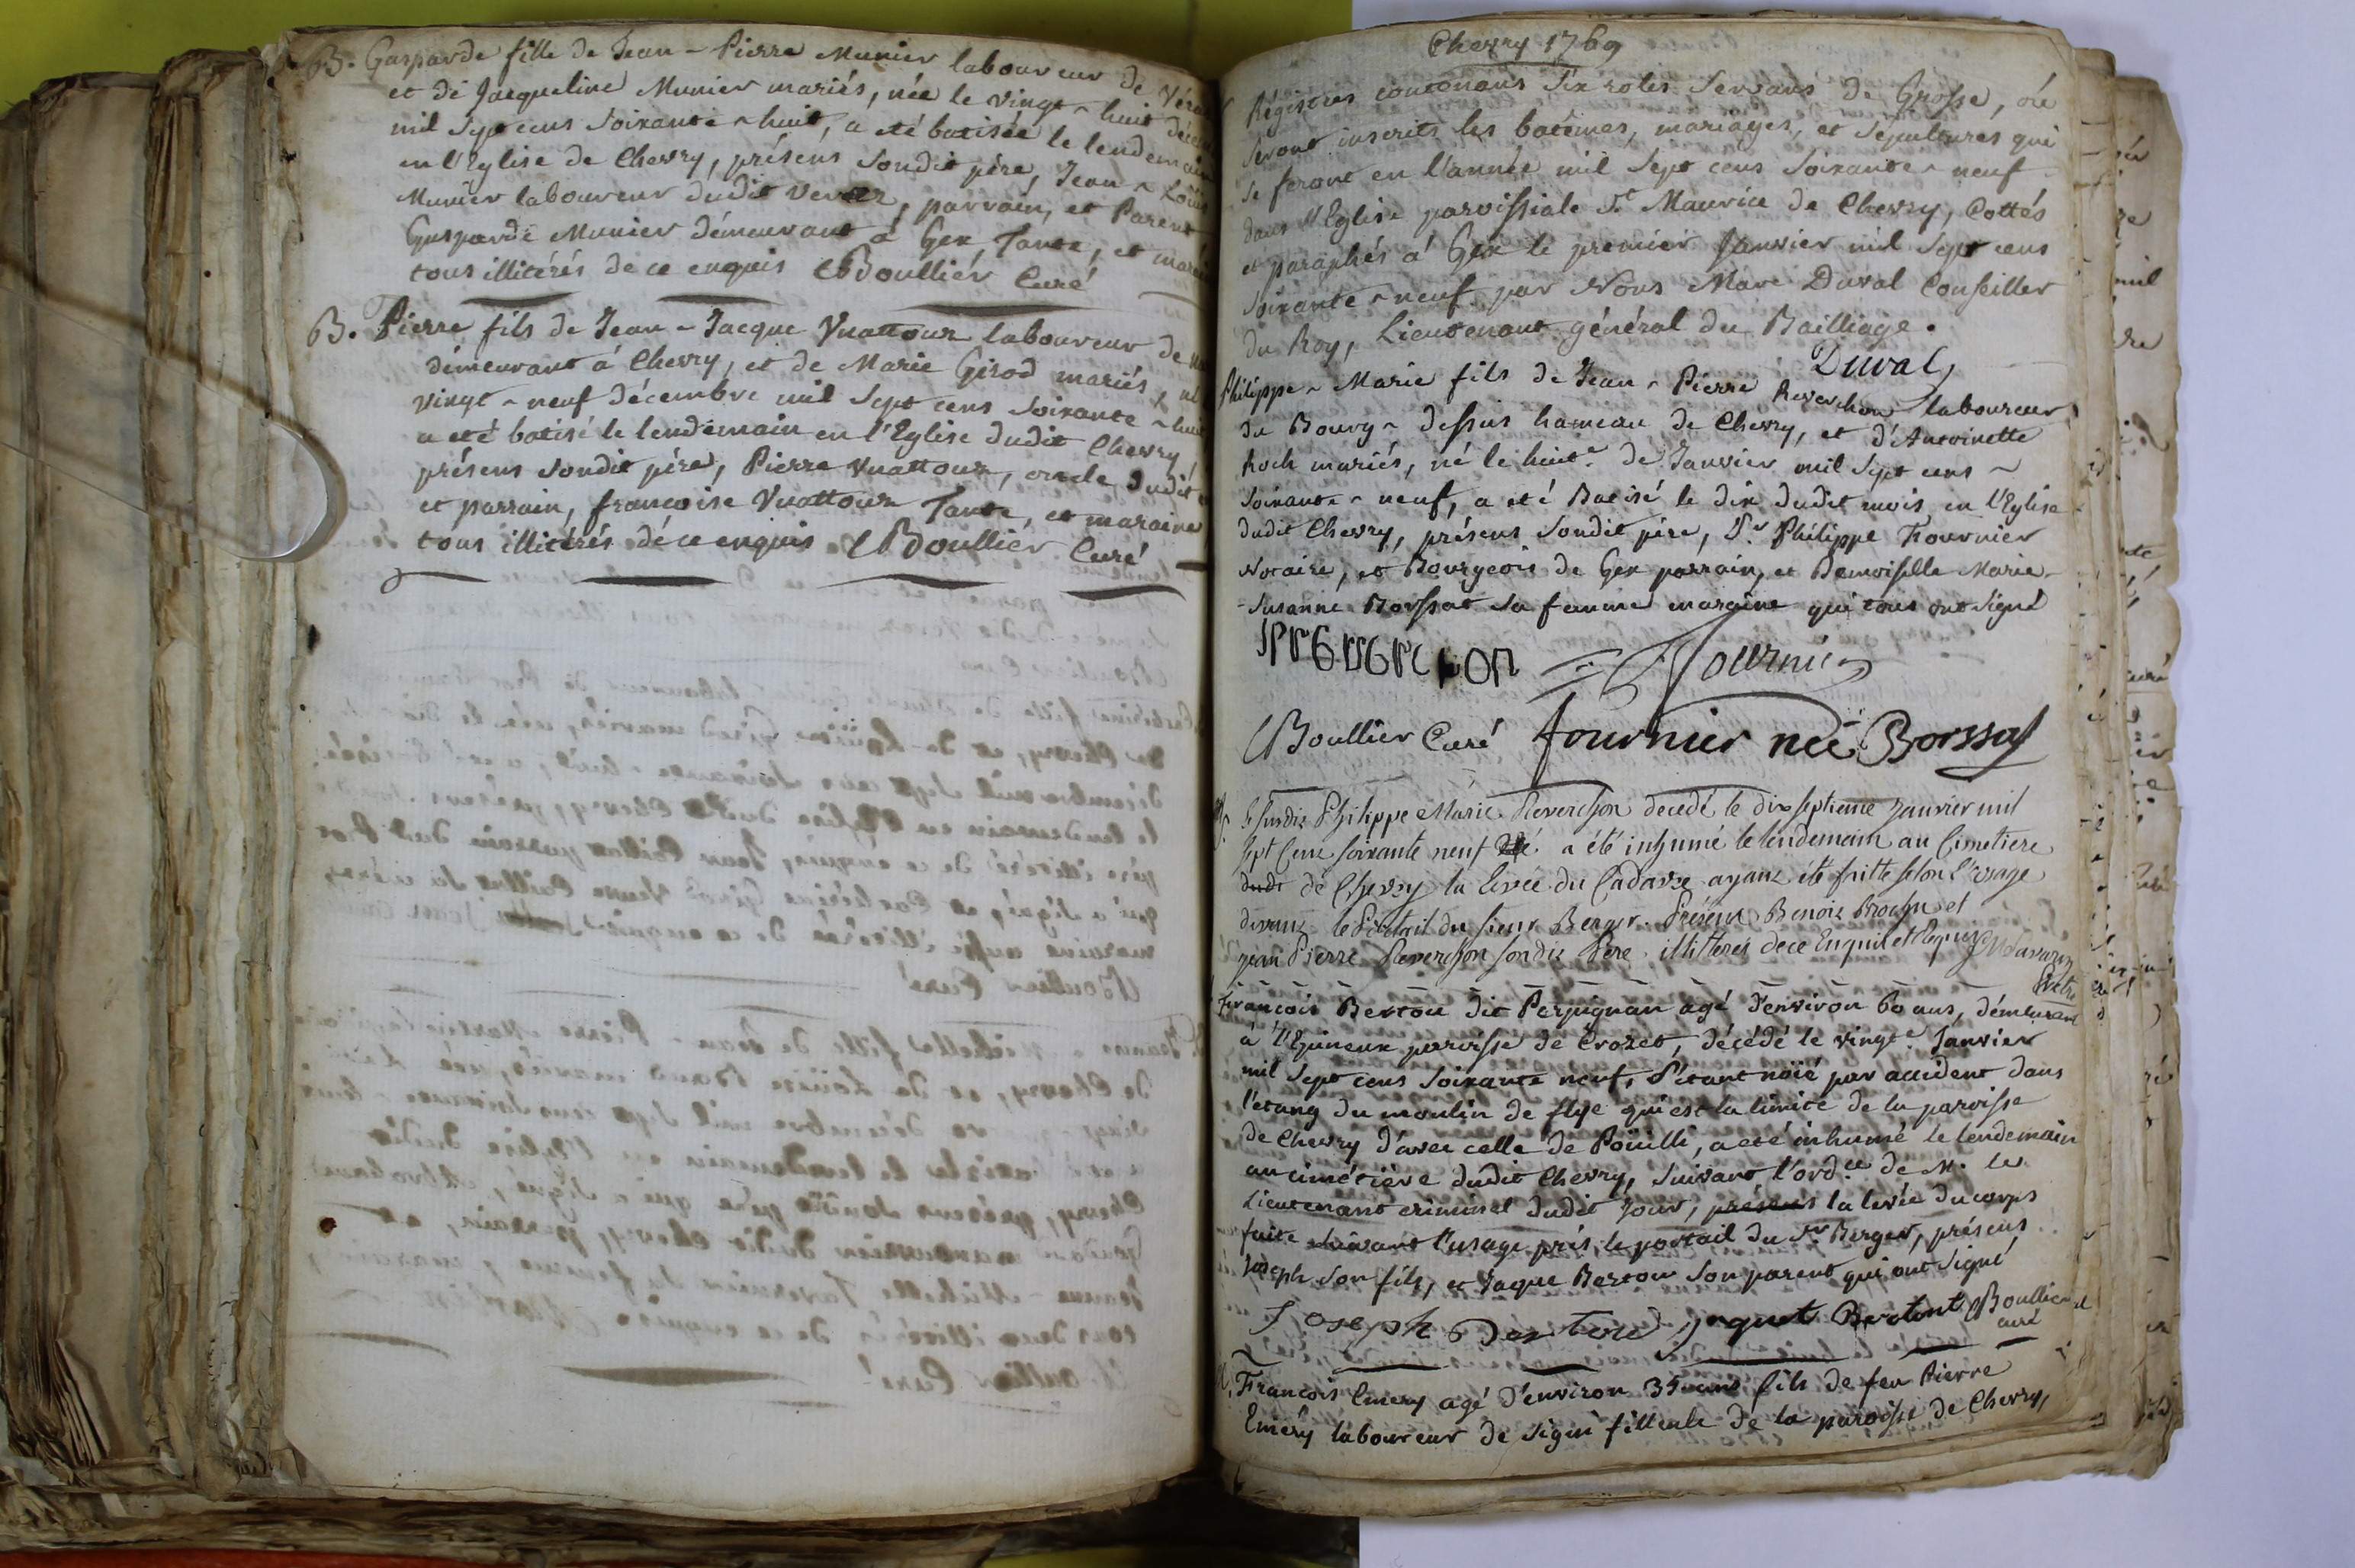 B. Gasparde fille de Jean - Pierre Munier laboureur de
et de Jacqueline Munier mariés, née le vingt - huit
mil Sept cens Soixante - huit, a eté batisée le lendemain
en l'Eglise de Chevry, présens Sondit père, Jean - Louis
Munier laboureur dudit, parrain, et Parent
Gasparde Munier démeurant à Gex, Tante, et
tous illitérés de ce enquis Boullier Curé
B. Pierre fils de Jean - Jacque Vuattoux laboureur de
démeurant à Chevry, et de Marie Girod mariés, né
vingt - neuf décembre mil Sept cens Soixante - huit
a eté batisé le lendemain en l'Eglise dudit Chevry
présens Sondit père, Pierre Vuattoux, oncle dudit
et parrain, francoise Vuattoux Tante, et maraine
tous illitérés dé ce enquis Boullier Curé
Chevry 1769
Régistres contenans Six roles Servans de Grosse, où
Seront inscrits les batêmes, mariages, et Sépultures qui
Se feront en l'année mil Sept cens Soixante - neuf
dans l'Eglise paroissiale St. Maurice de Chevry, Cottés
et paraphés à Gex le premier Janvier mil Sept cens
Soixante - neuf par Nous Marc Duval Conseiller
du Roy, Lieutenant général du Bailliage.
Duval
Philippe - Marie fils de Jean - Pierre Reverchon laboureur
du Bourg - dessus hameau de Chevry, et d'Antoinette
Roch mariés, né le huite. de Janvier mil Sept cens -
Soixante - neuf, a eté Batisé le dix dudit mois en l'Eglise
dudit Chevry, présens Sondit père, Sr. Philippe Fournier
Notaire, et Bourgeois de Gex parrain, et Demoiselle Marie-
- Susanne Borssat Sa femme maraine qui tous ont Signé
Fournier
Boullier Curé fournier née Borssat
Le Susdit Philippe Marie Reverchon decedé le dix septieme Janvier mil
Sept Cens soixante neuf a été inhumé le lendemain au Cimetiere
dudt de Chevry la levée du Cadavre ayant été faitte selon l'usage
devant le Portail du sieur Berger. Présens Benoit Brochu et
jean Pierre Reverchon sondit Pere illitteres de ce Enquis et Requis
Prêtre
Francois Bertou dit Perpignan agé d'environ 60 ans, démeurant
à l'Epineux paroisse de Crozet, décédé le vingte. Janvier
mil Sept cens Soixante neuf, S'étant noïé par accident dans
l'etang du moulin de flye qui est la limite de la paroisse
de Chevry d'avec celle de Poüilli, a eté inhumé le lendemain
au cimétière dudit Chevry, Suivant l'ordce de M. le
Lieutenant criminel dudit Jour, présens la levée du corps
faite Suivant l'usage près le portail du Sr Berger, présens
Joseph Son fils, et Jaque Bertou Son parent qui ont Signé
Joseph jaquet Bertout Boullier
curé
François Emery agé d'environ 35 ans fils de feu Pierre
Emery laboureur de Signi filleule de la paroisse de Chevry,